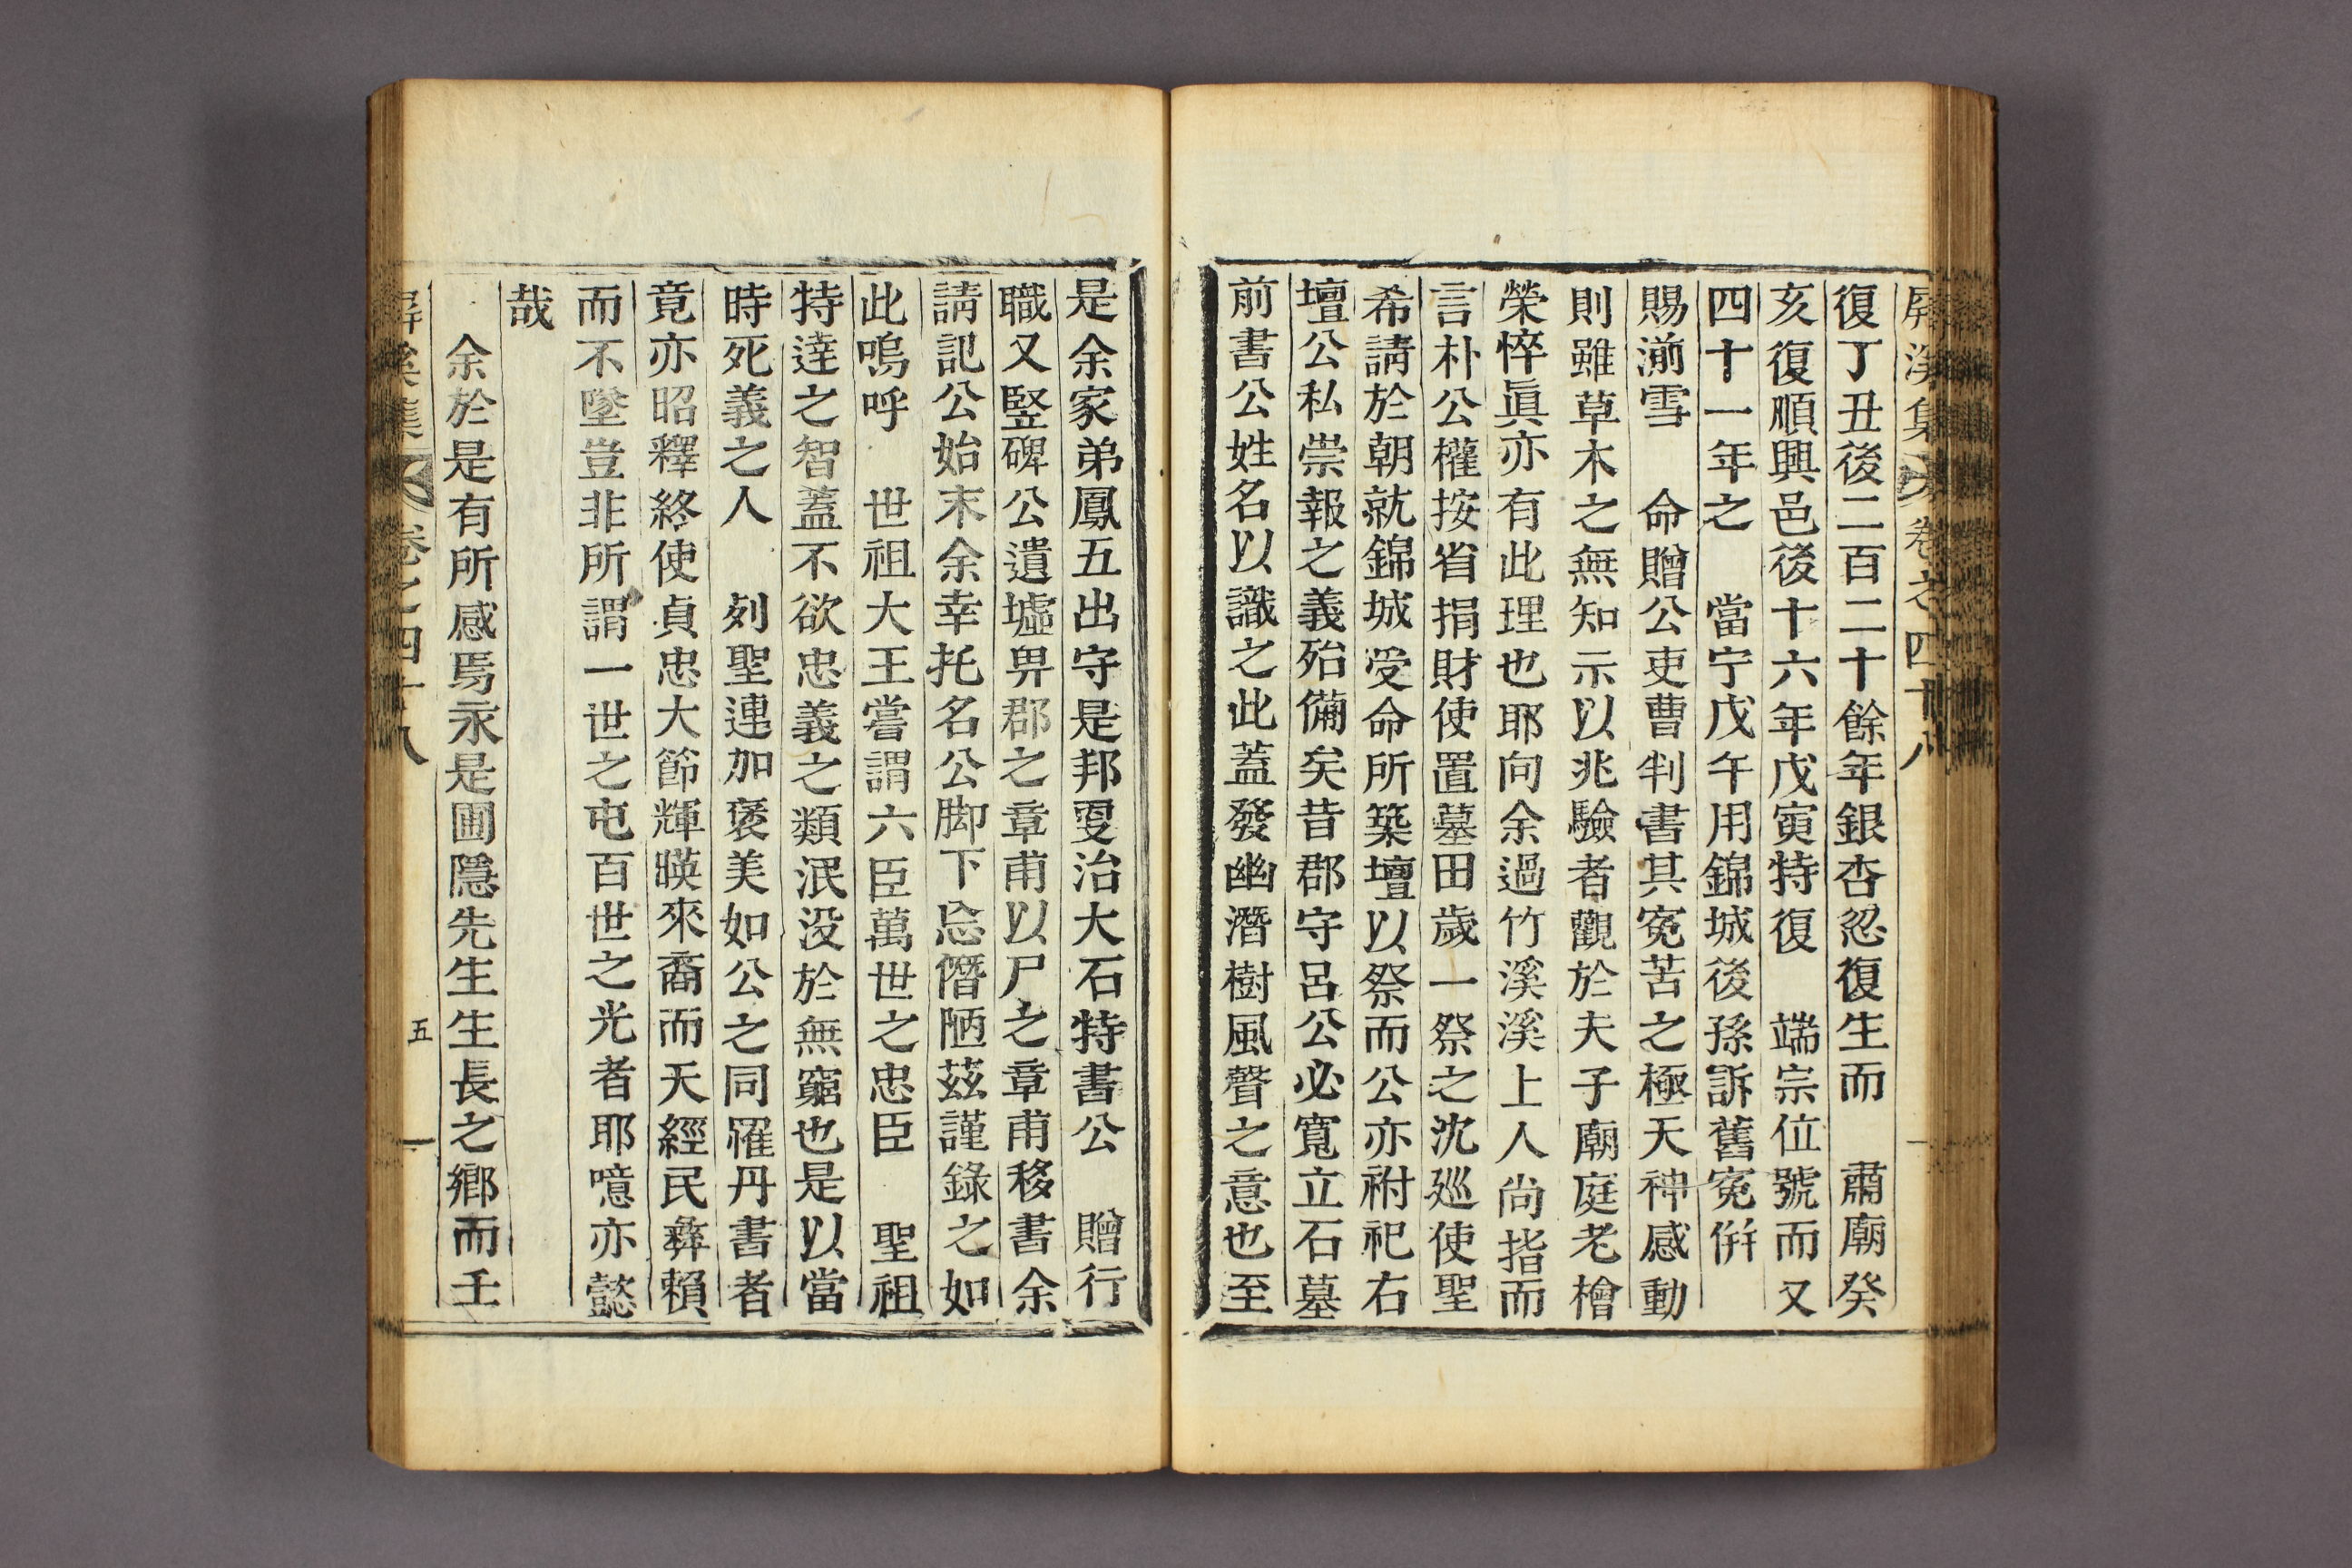 屛溪集 卷之四十八
復丁丑後二百二十餘年銀杏忽復生而 肅廟癸
亥復順興邑後十六年戊寅特復 端宗位號而又
四十一年之 當宁戊午用錦城後孫訴舊冤倂
賜湔雪 命贈公吏曹判書其冤苦之極天神感動
則雖草木之無知示以兆驗者觀於夫子廟庭老檜
榮悴眞亦有此理也耶向余過竹溪溪上人尚指而
言朴公權按省捐財使置墓田歲一祭之沈廵使聖
希請於朝就錦城受命所築壇以祭而公亦祔祀右
壇公私崇報之義殆備矣昔郡守呂公必寬立石墓
前書公姓名以識之此蓋發幽潛樹風聲之意也至
是余家弟鳳五出守是邦𠭊治大石特書公 贈行
職又竪碑公遺墟畀郡之章甫以尸之章甫移書余
請記公始末余幸托名公脚下忘僭陋茲謹錄之如
此嗚呼 世祖大王嘗謂六臣萬世之忠臣 聖祖
特達之智蓋不欲忠義之類泯没於無窮也是以當
時死義之人 列聖連加褒美如公之同罹丹書者
竟亦昭釋終使貞忠大節輝暎來裔而天經民彝賴
而不墜豈非所謂一世之屯百世之光者耶噫亦懿
哉
余於是有所感焉永是圃隱先生生長之鄕而壬
屛溪集 卷之四十八 五